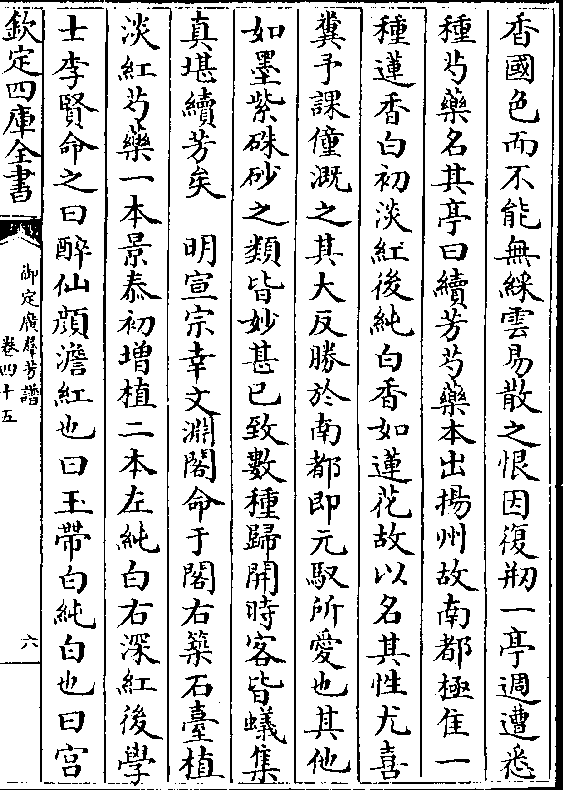 香國色而不能無綵雲易散之恨因復刱一亭週遭悉
種芍藥名其亭曰續芳芍藥本出揚州故南都極佳一
種蓮香白初淡紅後純白香如蓮花故以名其性尤喜
糞予課僮溉之其大反勝於南都即元馭所愛也其他
如墨紫硃砂之類皆妙甚已致數種歸開時客皆蟻集
真堪續芳矣　明宣宗幸文淵閣命于閣右築石臺植
淡紅芍藥一本景泰初增植二本左純白右深紅後學
士李賢命之曰醉仙顔澹紅也曰玉帶白純白也曰宫
欽定四庫全書
御定廣羣芳譜
卷四十五
六